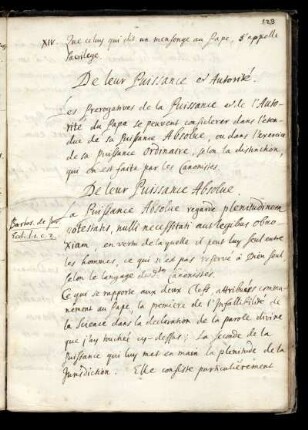 128
XIV. Que celuy qui dit un mensonge au Pape, s'appelle
Sacrilege.
De leur Puissance et Autorité.
Les Prerogatives de la Puissance et de l'Auto-
rité du Pape se peuvent considerer dans l'éten-
due de sa Puissance Absolue, ou dans l'exercice
de sa Puissance Ordinaire, selon la distinction,
qui en est faite par les Canonistes.
De leur Puissance Absolue
La Puissance Absolue regarde plenitudinem
potestatis, nulli necessitati nullis legibus obno-
xiam, en vertu de laquelle il peut luy seul entre
les hommes, ce qui n'est pas reservé à Dieu seul
selon le langage des Canonistes.
Ce qui se rapporte aux deux Clefs, attribuées commu-
nement au Pape, la premiere de l'Infallibilité de
la Science dans la declaration de la parole divine
que j'ay touchée cy-dessus; La seconde de la
Puissance qui luy met en main la plenitude de la
Jurisdiction: Elle consiste particulierement